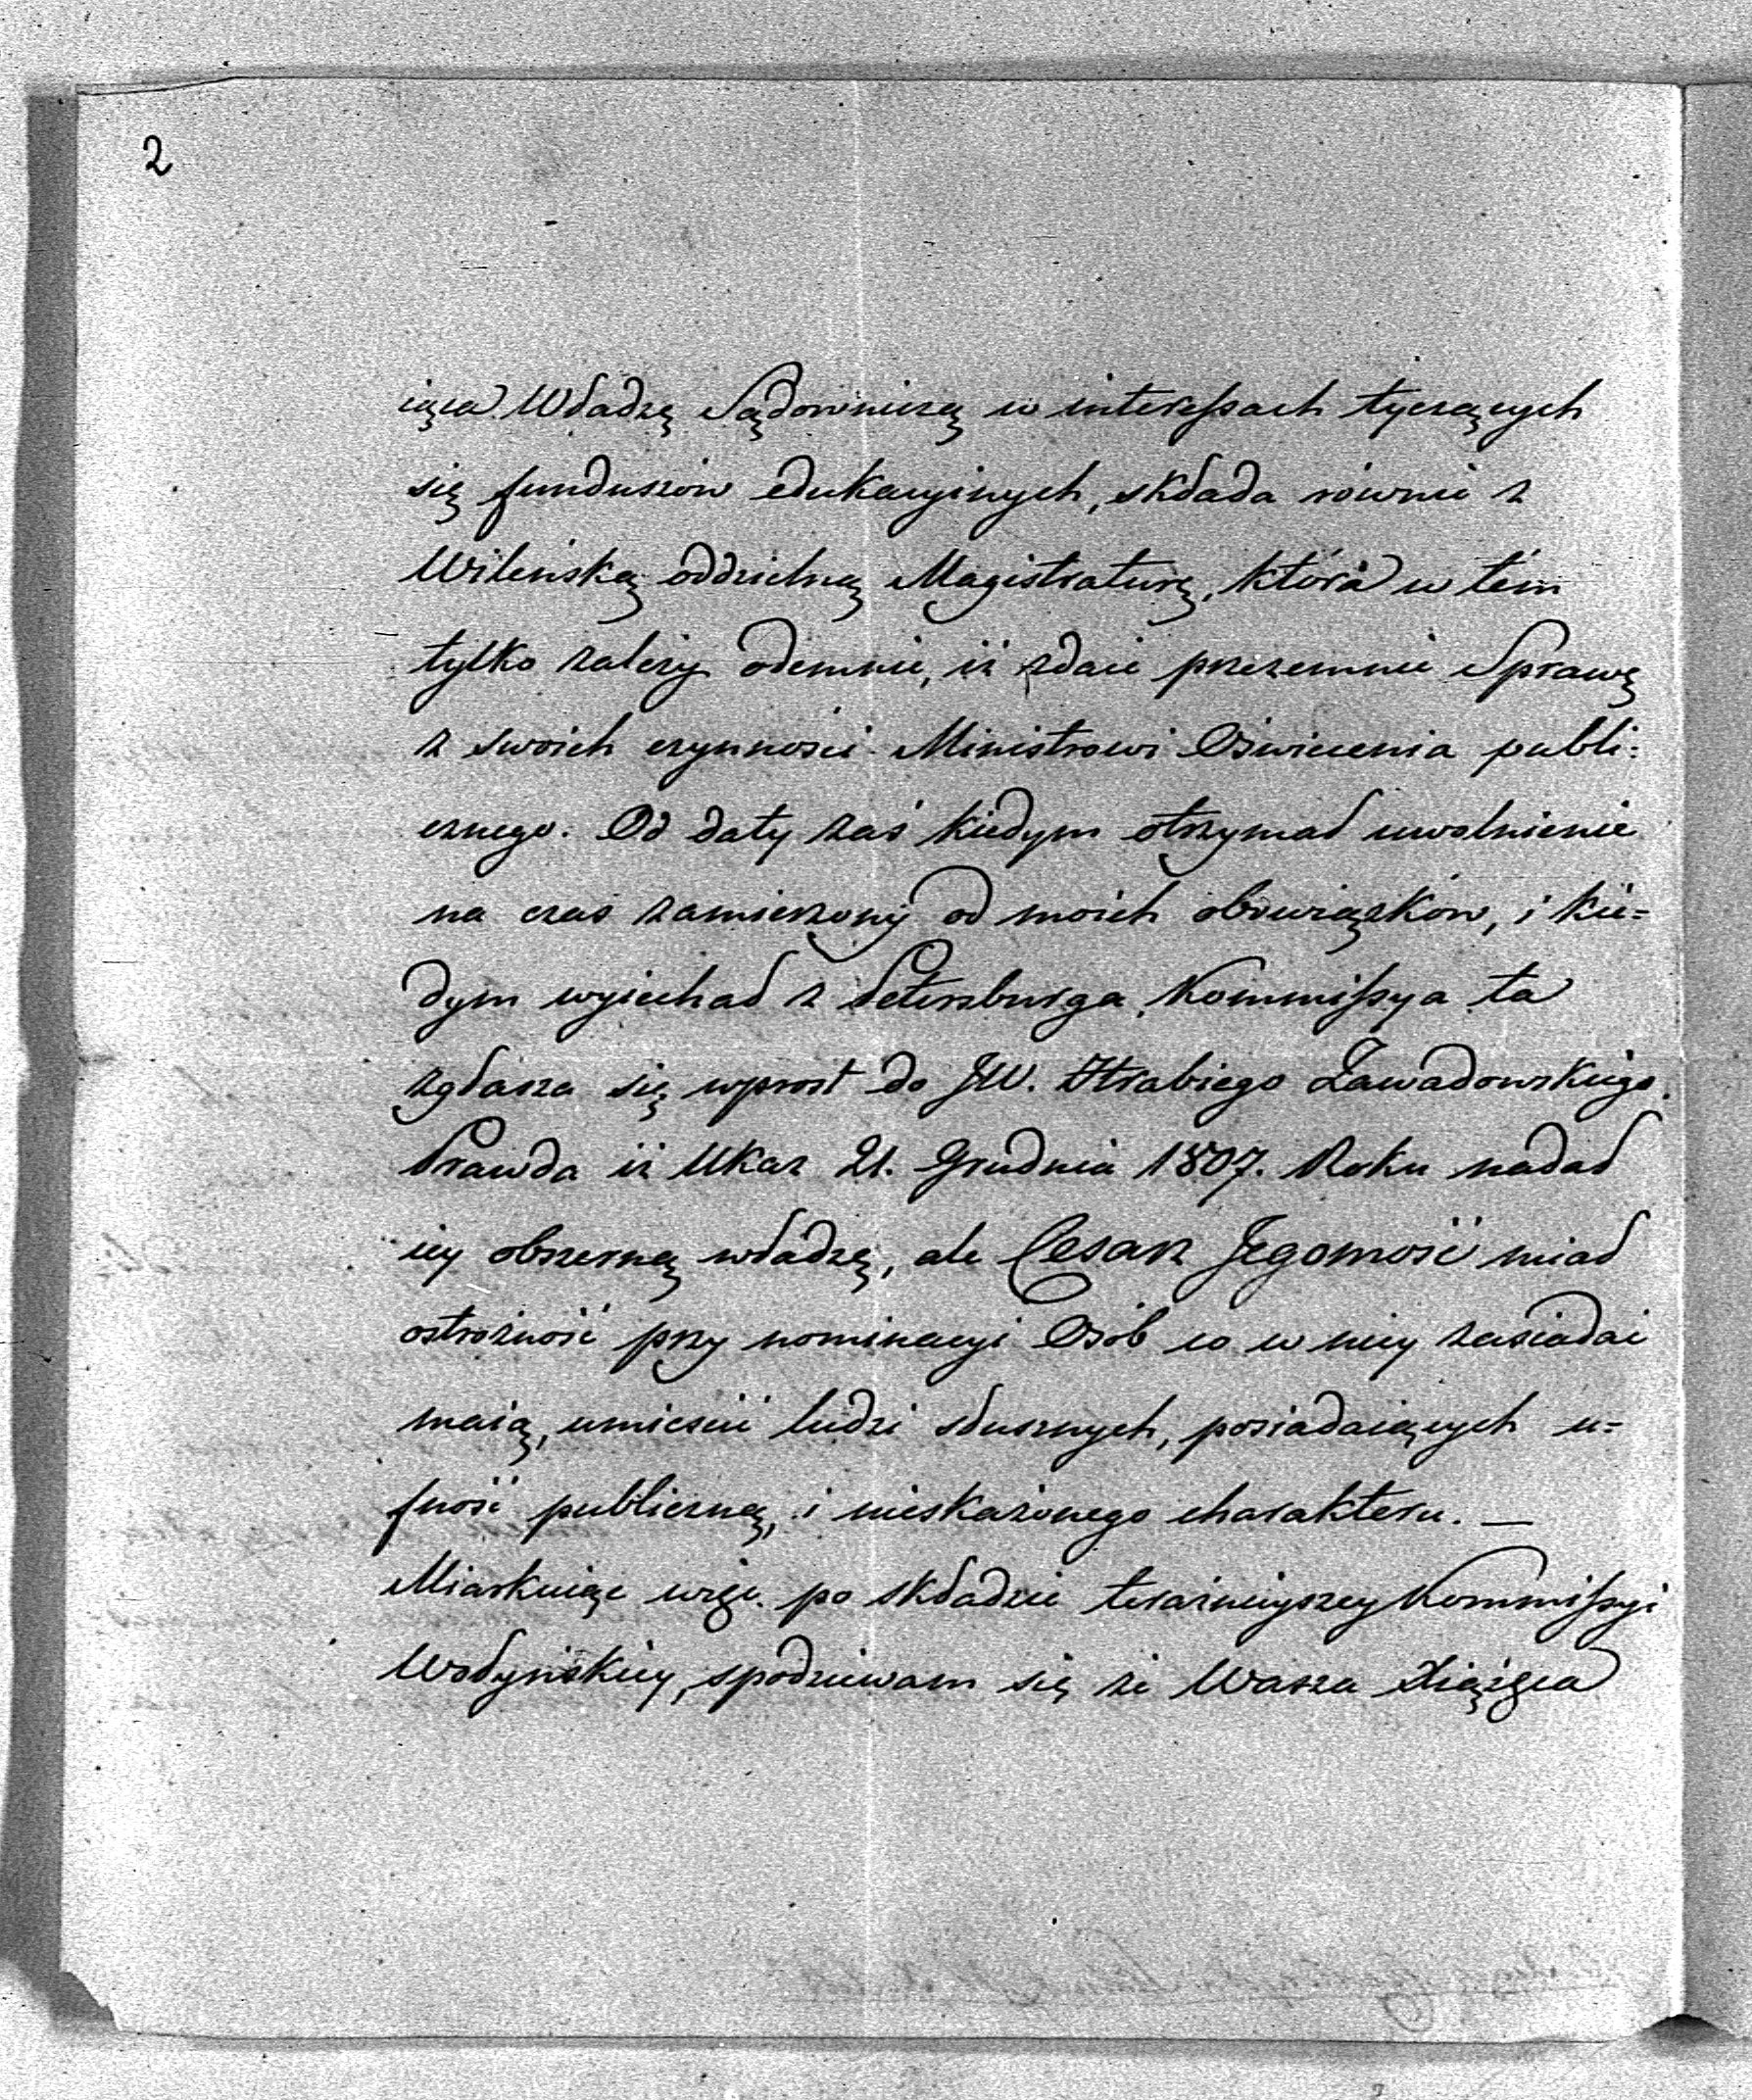 2
iąca Władzę Sądowniczą w interessach tyczących
się funduszow edukacyinych, składa rownie z
Wileńską oddzielną Magistraturę, która w tém
tylko zależy odemnie, iż zdaie przezemnie Sprawę
z swoich czynności Ministrowi Oświecenia publi:
cznego. Od daty zaś kiedym otrzymał uwolnienie
na czas zamierzony od moich obowiązków, i kie=
dym wyiechał z Petersburga, Kommissya ta
zgłasza się wprost do JW. Hrabiego Zawadowskiego.
Prawda iż Ukaz 21. Grudnia 1807. Roku nadał
iey obszerną władzę, ale Cesarz Jegomość miał
ostrożność przy nominacyi Osób co w niey zasiadać
maią, umieścić ludzi słusznych, posiadaiących u=
fność publiczną, i nieskażonego charakteru. —
Miarkuiąc więc po składzie teraźnieyszey Kommissyi
Wołyńskiey, spodziewam się że Wasza Xiążęca